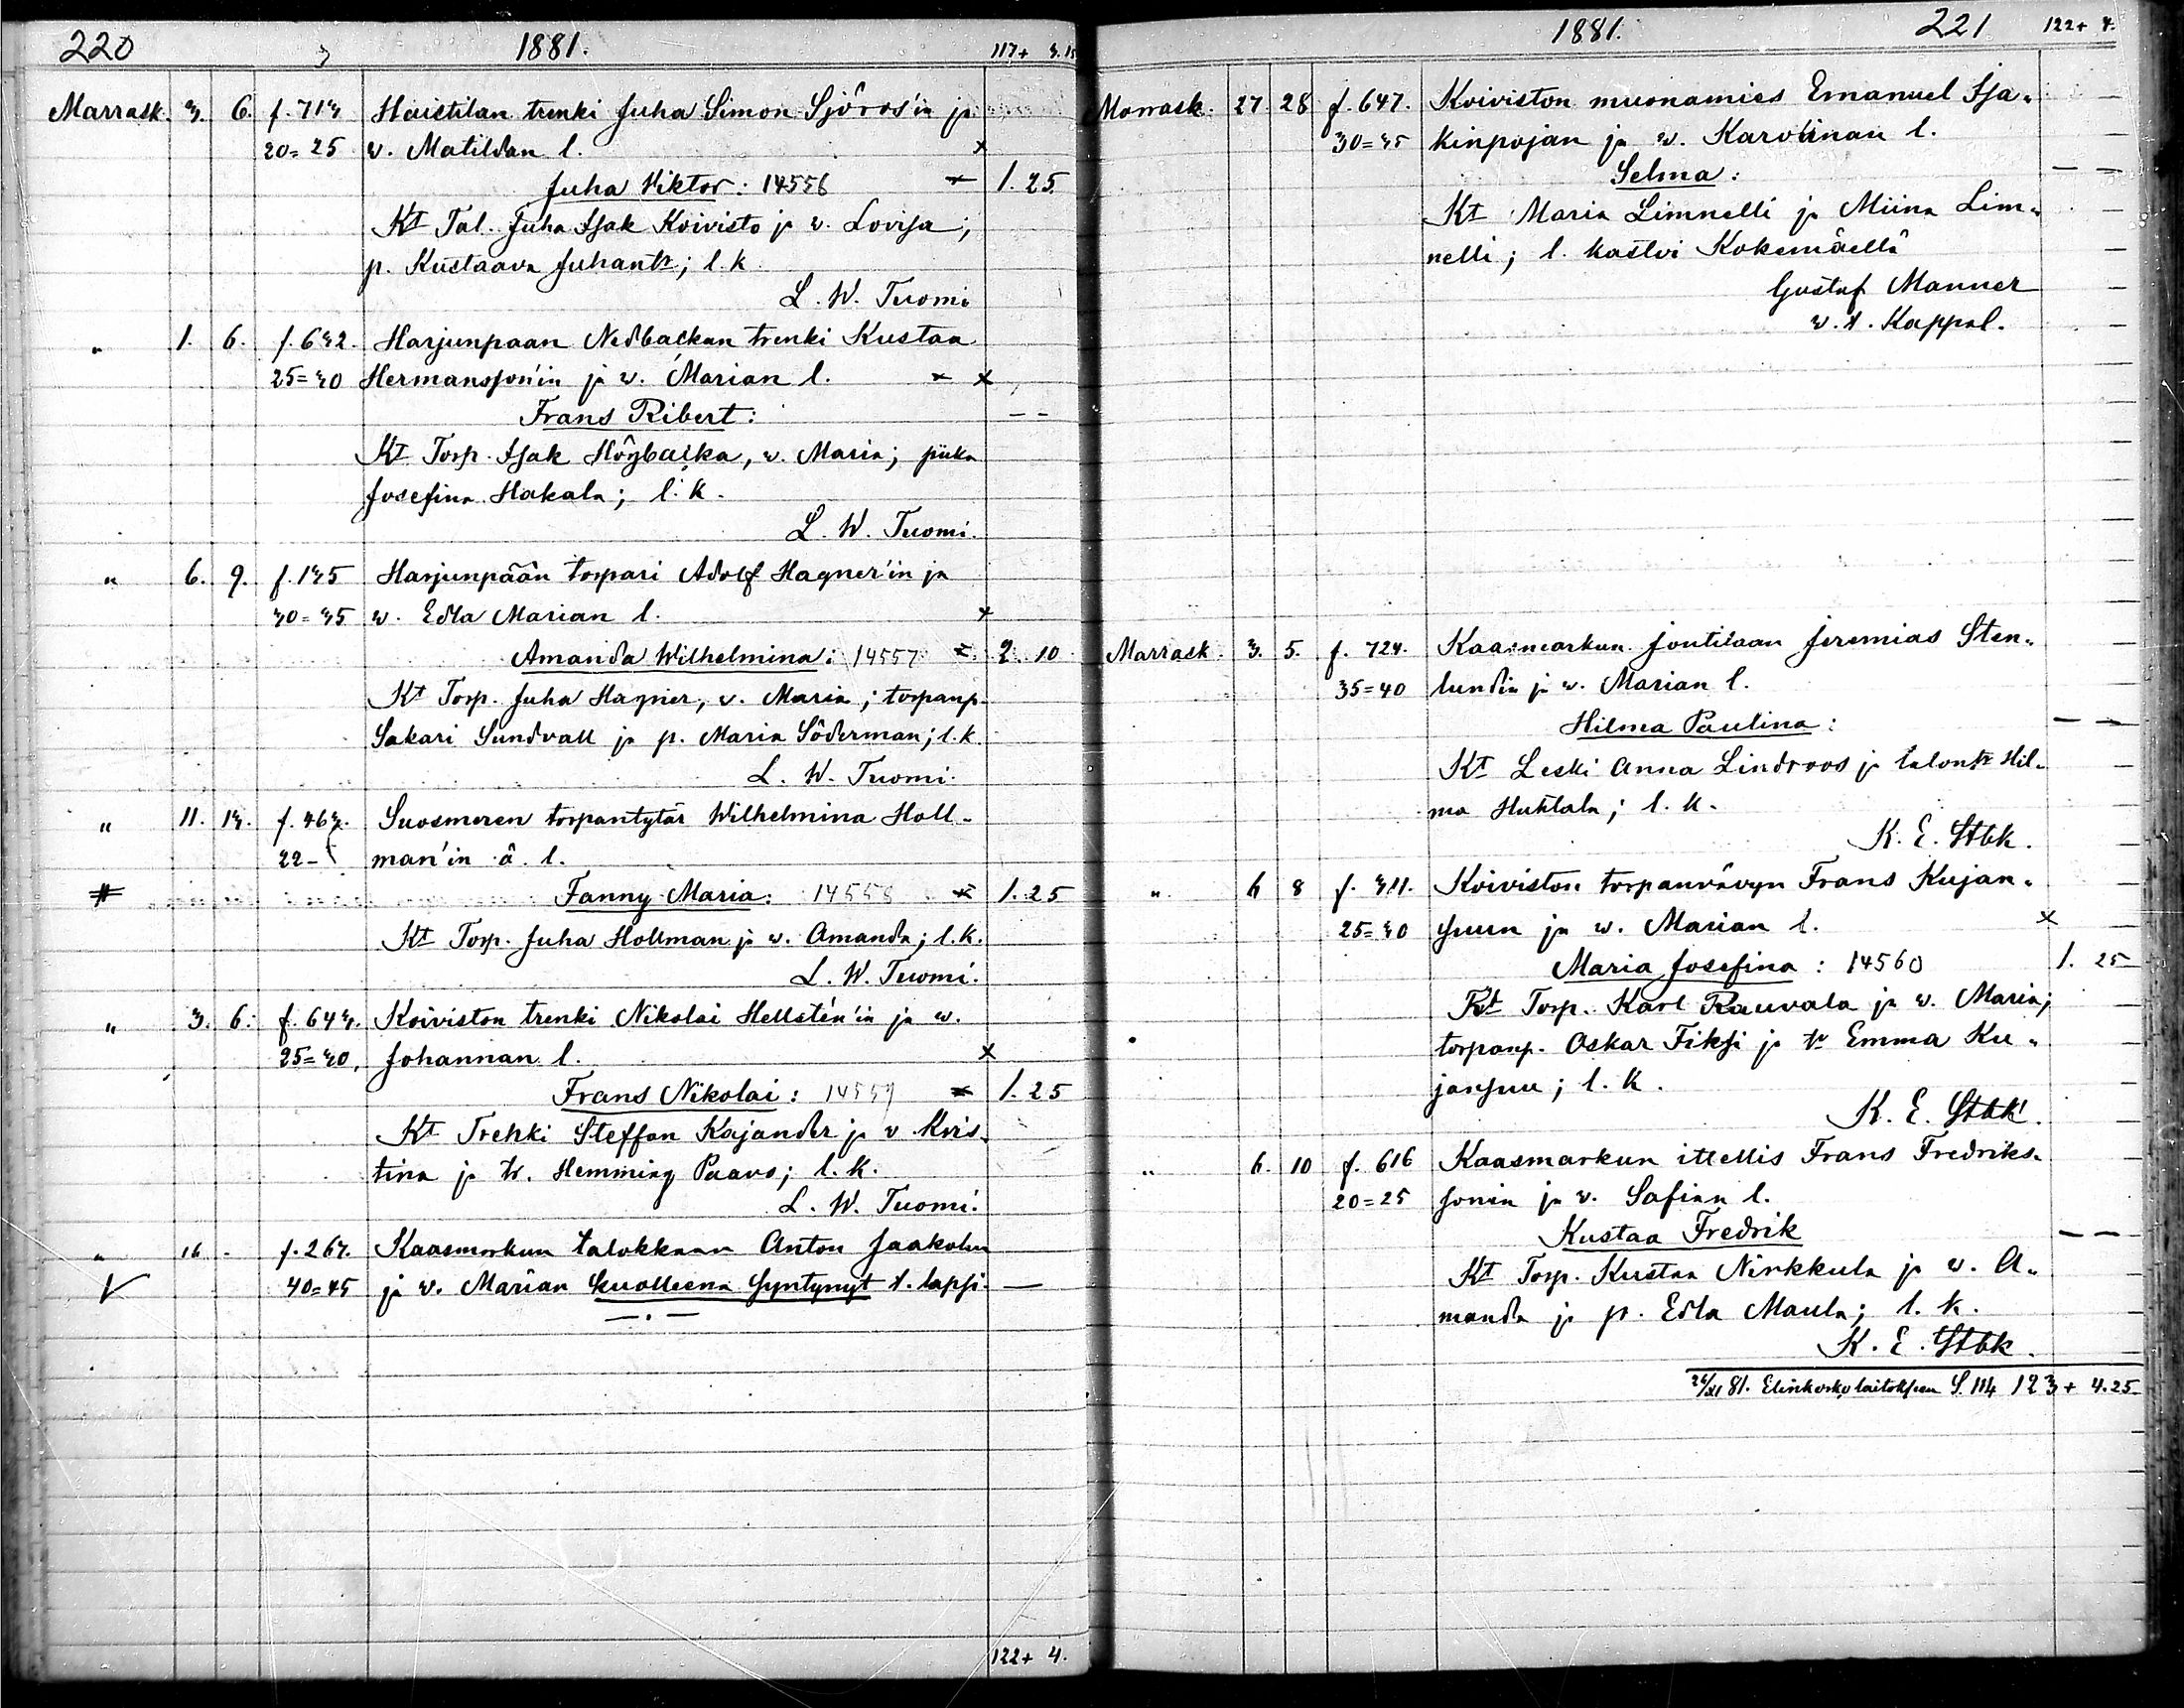 220 1881. 117+ 3.15
Marrask. 3. 6. f. 713 Haistilan trenki Juha Simon Sjöros'in ja
20=25 w. Matildan l. x
Juha Viktor: 14556 1.25
Kt Tal. Juha Isak Koivisto ja w. Lovisa;
p. Kustaava Juhantr; l. k.
L. W. Tuomi
" 1. 6. f. 632. Harjunpaan Nedbackan trenki Kustaa
25=30 Hermansson'in ja w. Marian l. x
Frans Ribert: - -
Kt Torp. Isak Högbacka, w. Maria; piika
Josefina Hakala; l. k.
L. W. Tuomi.
" 6. 9. f. 135 Harjunpään torpari Adolf Hagner'in ja
30=35 w. Edla Marian l. x
Amanda Wilhelmina: 14557 2. 10
Kt Torp. Juha Hagner, w. Maria; torpanp.
Sakari Sundvall ja p. Maria Söderman; l. k.
L. W. Tuomi.
" 11. 13. f. 463. Suosmeren torpantytär Wilhelmina Holl-
22- man'in ä. l.
# Fanny Maria: 14558 x 1.25
Kt Torp. Juha Hollman ja w. Amanda; l. k.
L. W. Tuomi.
" 3. 6. f. 643. Koiviston trenki Nikolai Hellstén'in ja w.
25=30, Johannan l. x
Frans Nikolai: 14559 x 1.25
Kt Trenki Steffan Kajander ja v. Kris-
tina ja tr. Hemming Paavo; l. k.
L. W. Tuomi.
" 16 - f. 267. Kaasmarkun talokkaan Anton Jaakolan
V 40=45 ja w. Marian kuolleena syntynyt t. lapsi. —
122+ 4.
1881. 221 122+ 4.
Marrask. 27 28 f. 647. Koiviston muonamies Emanuel Isa-
30=35 kinpojan ja w. Karolinan l.
Selma: — —
Kt Maria Limnelli ja Miina Lim-
nelli; l. kastoi Kokemäellä
Gustaf Manner
v. t. Kappal.
Marrask. 3. 5. f. 724. Kaasmarkun joutilaan Jeremias Sten-
35=40 lundin ja w. Marian l.
Hilma Paulina: — —
Kt Leski Anna Lindroos ja talontr Hil-
ma Huhtala; l. k.
K. E. Stbk.
" 6 8 f. 311. Koiviston torpanvävyn Frans Kujan-
25=30 suun ja w. Marian l. x
Maria Josefina: 14560 1. 25
Kt Torp. Karl Rauvala ja w. Maria;
torpanp. Oskar Fiksi ja tr Emma Ku-
jansuu; l. k.
K. E. Stbk.
" 6. 10 f. 616 Kaasmarkun itellis Frans Fredriks-
20=25 sonin ja v. Safian l.
Kustaa Fredrik — —
Kt Torp. Kustaa Nirkkula ja w. A-
manda ja p. Edla Maula; l. k.
K. E. Stbk.
26/XI 81. Elinkorkolaitoksen S. 114 123+ 4.25